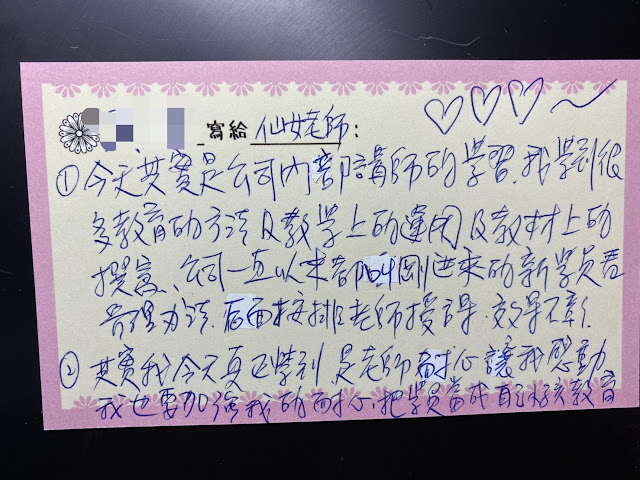 寫給 仙女老師：
①今天其實是公司內部講師的學習，我學到很
多教育的方法及教學上的運用及教材上的
撰寫、公司一直以來都叫剛進來的新學員看
管理辦法，后面按排老師授課，效果不彰．
②其實我今天真正學到，是老師耐心讓我感動
我也要加強我的耐心，把學員當成自己孩教育